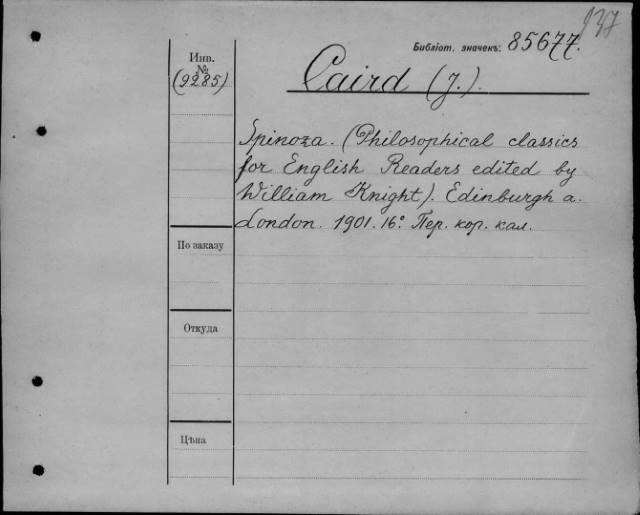 937
Библіот. значекъ: 85677.
Инв.
№
(9285)
Caird (J.).
Spinoza. (Philosophical classics
for English Readers edited by
William Knight). Edinburgh a.
London. 1901. 16° Пер. кор. кал.
По заказу
Откуда
Цѣна